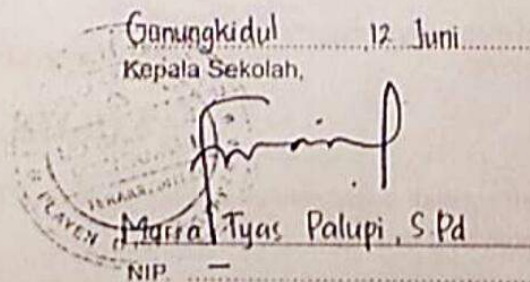 Gunungkidul 12 Juni
Kepala Sekolah,
PLAYEN
Tyas Palupi, S.Pd
NIP. —